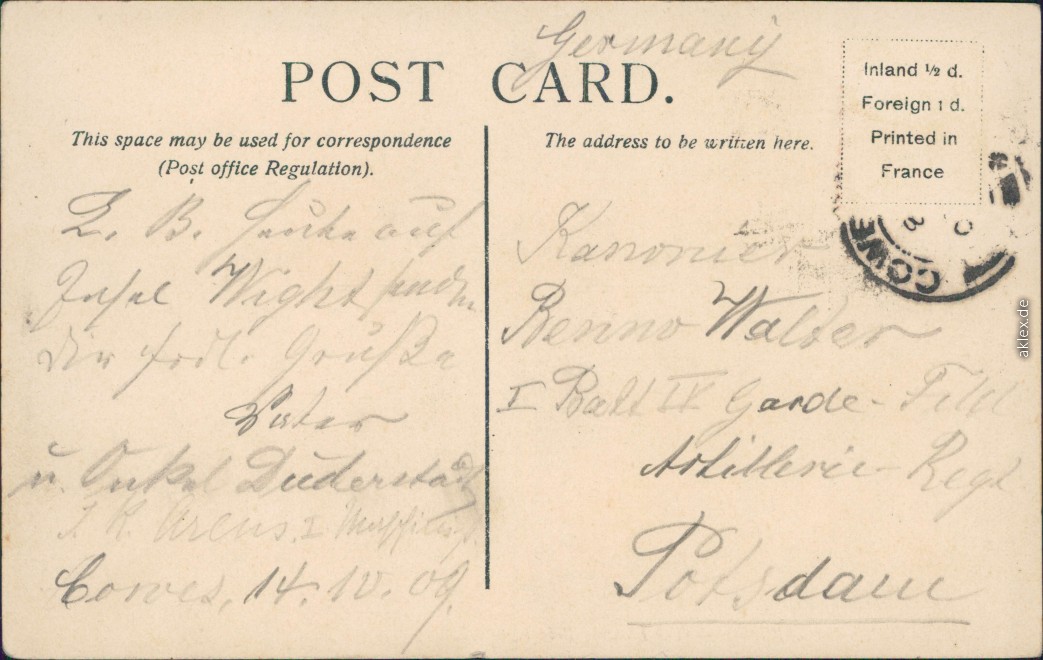 Germany
POST CARD.
This space may be used for correspondence
(Post office Regulation).
The address to be written here.
Inland ½ d.
Foreign 1 d.
Printed in
France
COWE
Z. B. Heute auf
Insel Wight senden
Dir frdl. Grüße
Vater
u. Onkel Duderstadt
Cowes, 14. 10. 09.
Kanonier
Benno Walter
I Batt IV Garde-Feld
Artillerie-Regt
Potsdam
aklex.de